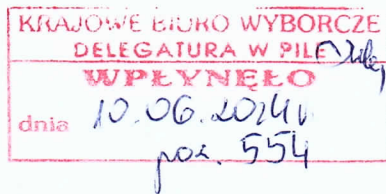 KRAJOWE BIURO WYBORCZE
DELEGATURA W PILE
WPŁYNĘŁO
dnia 10.06.2024r
poz. 554